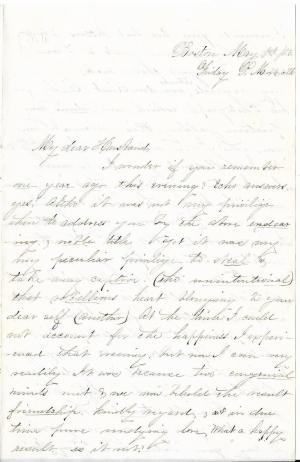 Boston May
Friday P.M.
My dear Husband
I wonder if you remember
one year ago this evening? Echo answers
yes. Altho it was not my privilege
then to address you by the above endear
ing & noble title. Yet it was my
peculiar privilege to steal &
take away captive (tho unintentional)
that rebellious heart belonging to your
dear self (another) let me think I could
not account for the happiness I experi-
enced that evening. but now I can very
readily. It was because two congenial
minds met & we now behold the result
friendship kindly regard, & in due
time pure undying love, What a happy
result, is it not?